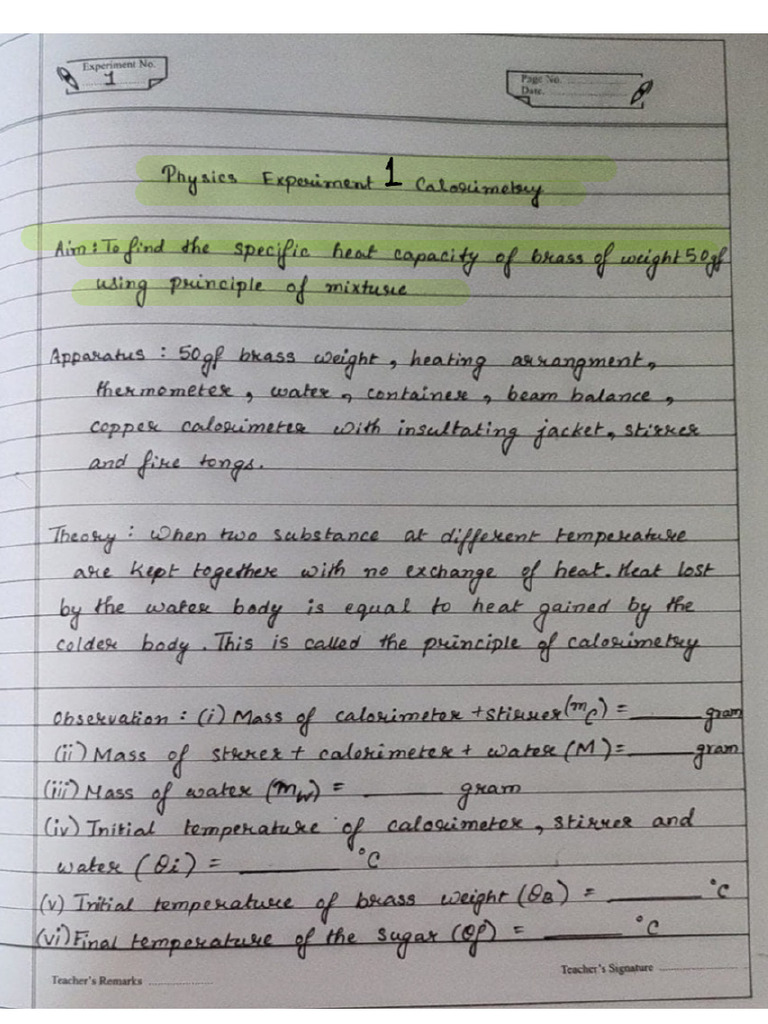 Experiment No.
1
Page No.
Date.
Physics Experiment 1 Calorimetry
Aim: To find the specific heat capacity of brass of weight 50gf
using principle of mixture
Apparatus : 50gf brass weight, heating arrangment,
thermometer, water, container, beam balance,
copper calorimeter with insultating jacket, stirrer
and fire tongs.
Theory : When two substance at different temperature
are kept together with no exchange of heat. Heat lost
by the water body is equal to heat gained by the
colder body. This is called the principle of calorimetry
Observation : (i) Mass of calorimeter + stirrer (mc) = ______ gram
(ii) Mass of strrer + calorimeter + water (M) = ______ gram
(iii) Mass of water (mw) = ______ gram
(iv) Initial temperature of calorimeter, stirrer and
water (θi) = ______ °C
(v) Initial temperature of brass weight (θB) = ______ °C
(vi) Final temperature of the sugar (θf) = ______ °C
Teacher's Signature
Teacher's Remarks